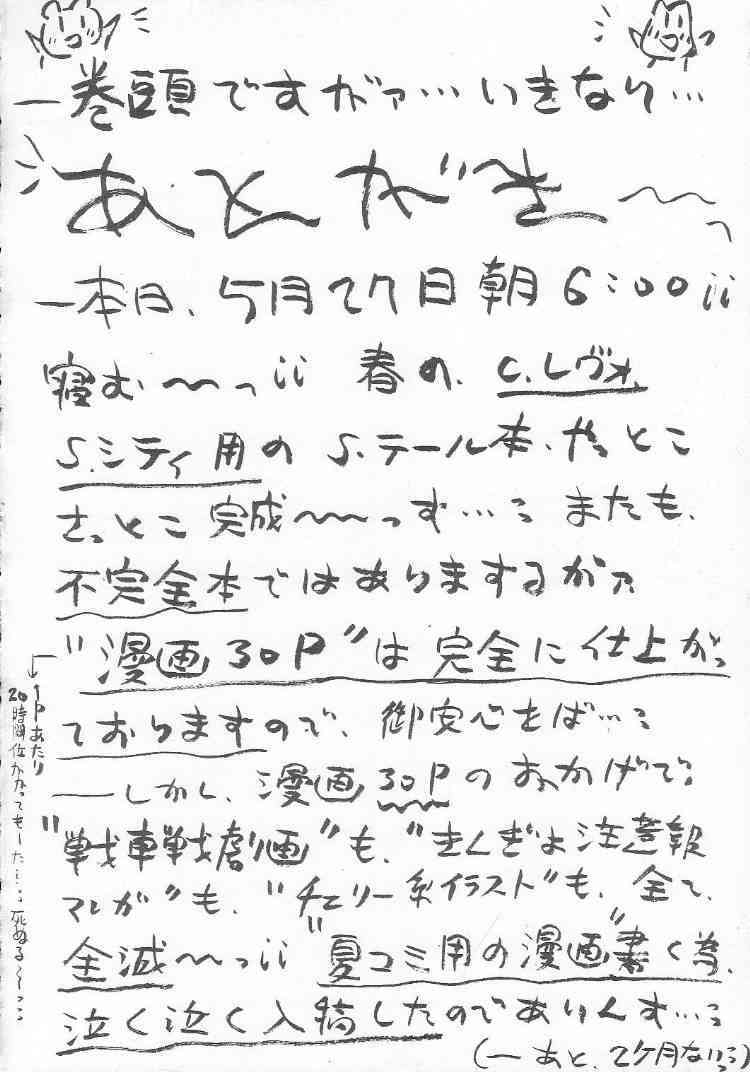 一巻頭ですがァ…いきなり…
あとがき〜〜っ
一本日、5月27日朝6:00¡¡
寝む〜〜っ¡¡ 春の、C.レヴォ、
S.シティ用のS.テール本、やっとこ
さっとこ完成〜〜〜っす…: またも、
不完全本ではありまするがァ
"漫画30P"は完全に仕上がっ
ておりますので、御安心をば…:
──しかし、漫画30Pのおかげで:
"戦車戦劇画"も、"きんぎょ注意報
マンガ"も、"チェリー系イラスト"も、全て、
全滅〜〜っ¡¡ "夏コミ用の漫画"書く為、
泣く泣く入稿したのでありんす…:
(一あと、2ケ月ないっ:)
1Pあたり
20時間位かかってもーた…: 死ぬる〜っ: